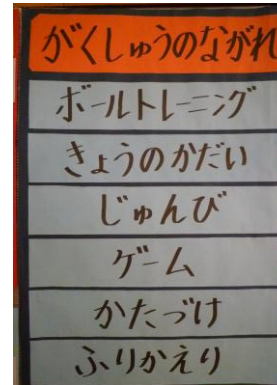 がくしゅうのながれ
ボールトレーニング
きょうのかだい
じゅんび
ゲーム
かたづけ
ふりかえり